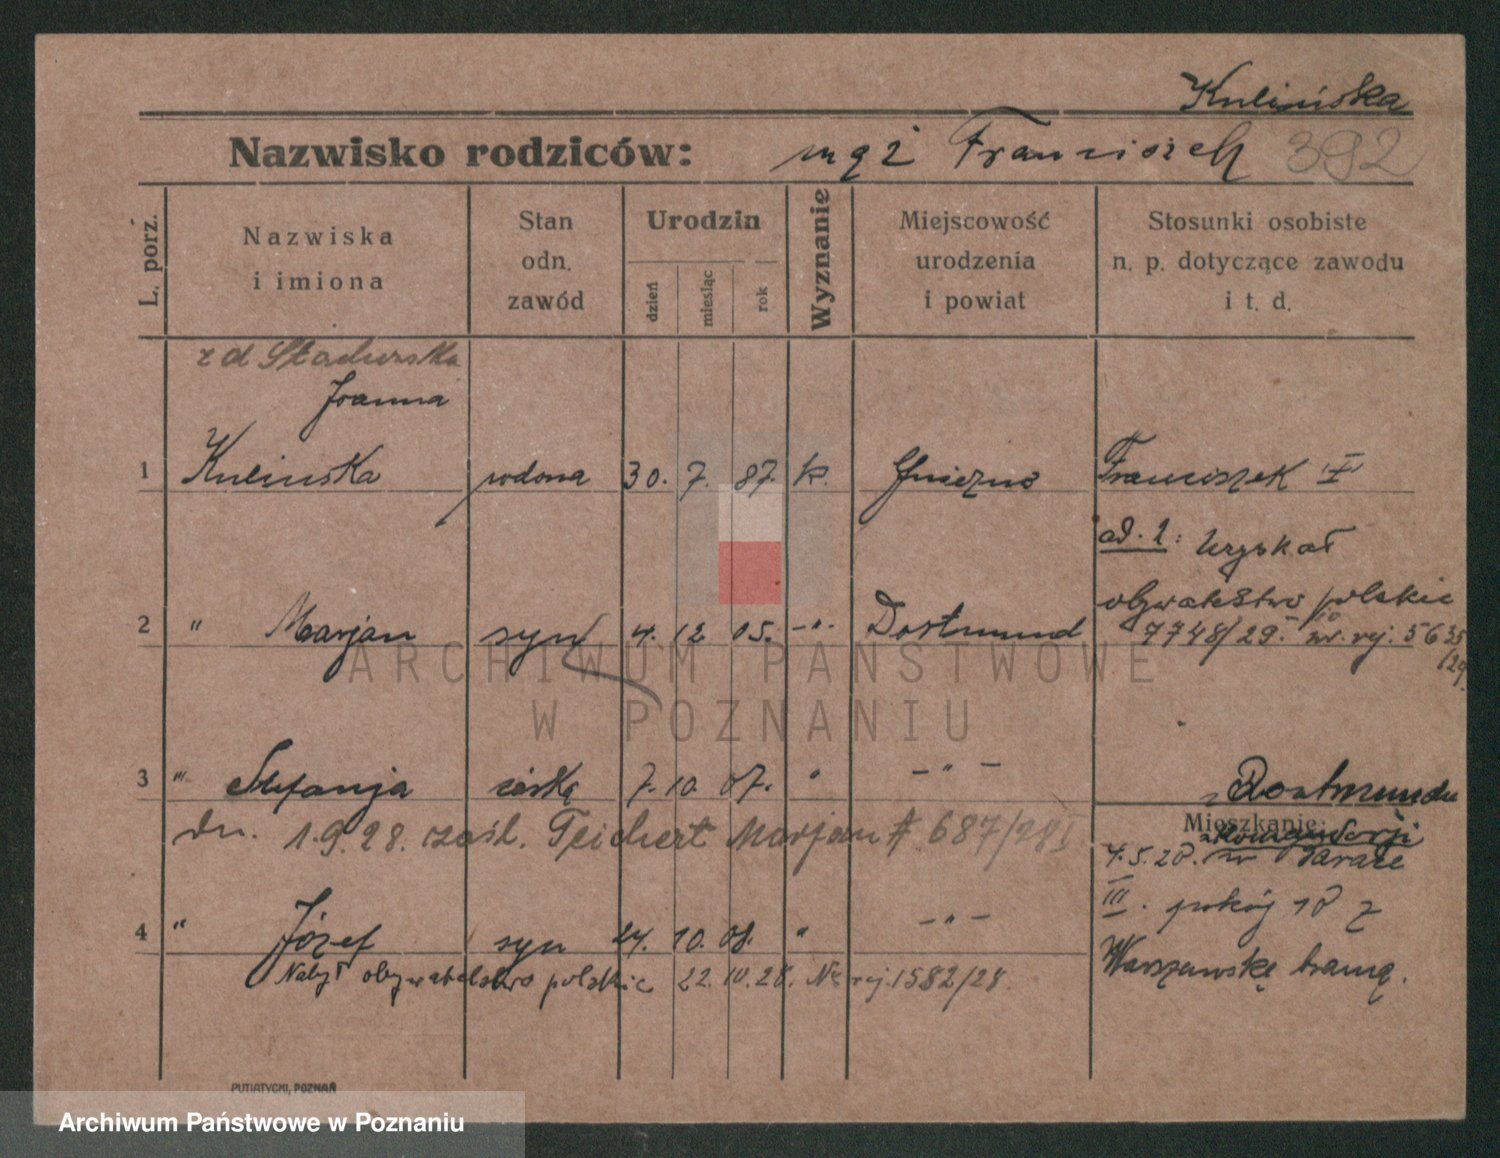 Kulińska
Nazwisko rodziców: mąż Franciszek 392
L. porz.
Nazwiska i imiona
Stan odn. zawód
Urodzin
dzień miesiąc rok
Wyznanie
Miejscowość urodzenia i powiat
Stosunki osobiste n. p. dotyczące zawodu i t. d.
z d Stachurska
Joanna
1 Kulinska wdowa 30. 7. 87. k. Gniezno Franciszek I
ad. 2: uzyskał
obywatelstwo polskie
2 " Marjan syn 4. 12 05. -"- Dortmund 7748/29. nr. rej. 5635/29.
3 " Stefanja córka 7. 10. 07. " -"- z Dortmundu
dn. 1.9.28. zaśl. Teichert Marjan # 687/28 I
Mieszkanie:
4.5.20. w
III. pokój 10 z
4 " Józef syn 24. 10. 08. " -"-
Warszawską bramą.
Nabył obywatelstwo polskie 22. 10. 28. Nr rej. 1582/28.
PUTIATYCKI, POZNAŃ
ARCHIWUM PAŃSTWOWE
W POZNANIU
Archiwum Państwowe w Poznaniu